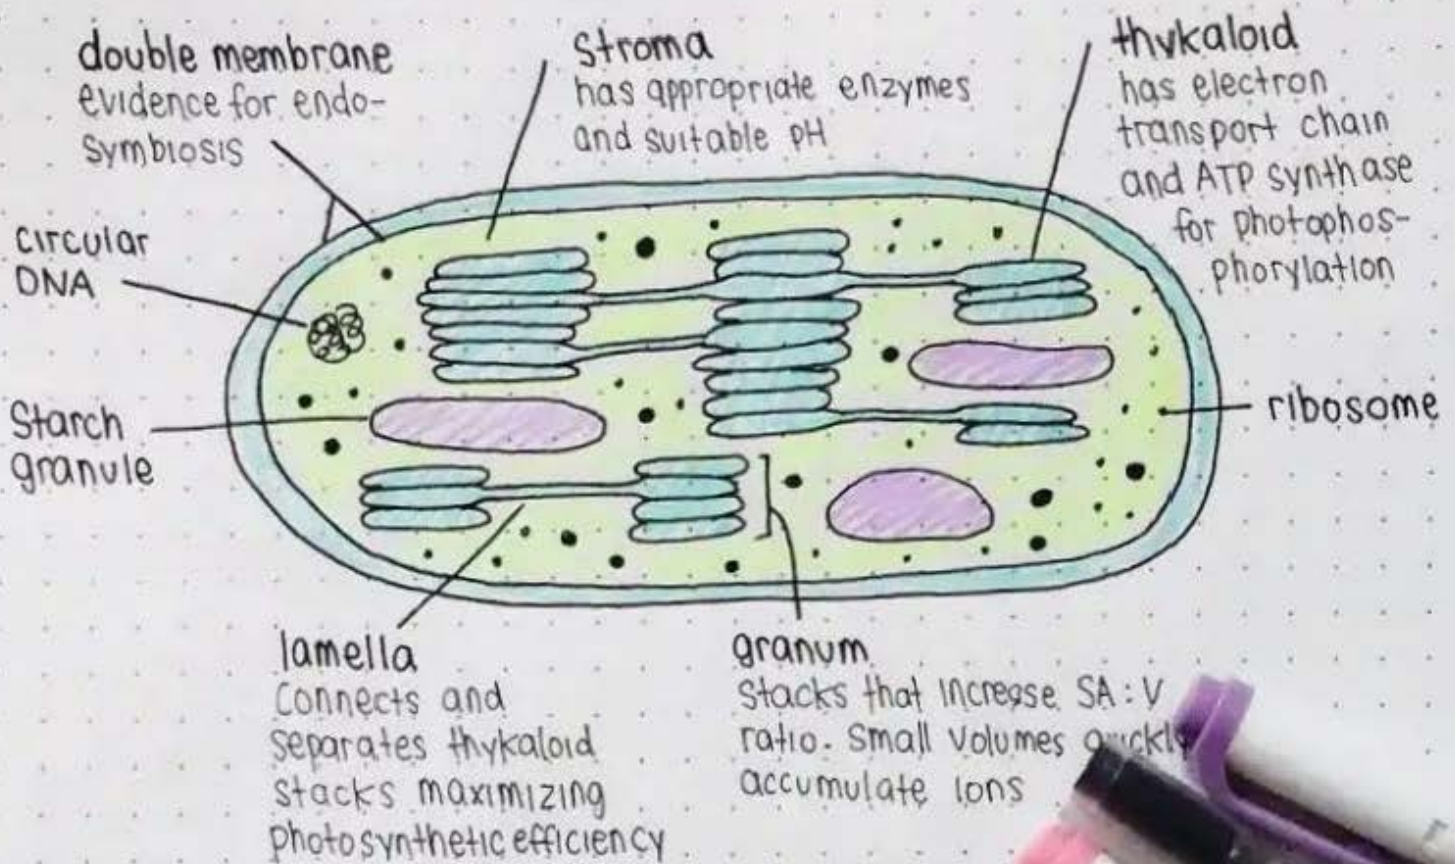 double membrane
evidence for endo-
symbiosis
stroma
has appropriate enzymes
and suitable pH
thykaloid
has electron
transport chain
and ATP synthase
for photophos-
phorylation
circular
DNA
Starch
granule
ribosome
lamella
Connects and
separates thykaloid
stacks maximizing
photosynthetic efficiency
granum
Stacks that increase SA:V
ratio. Small volumes quickly
accumulate ions